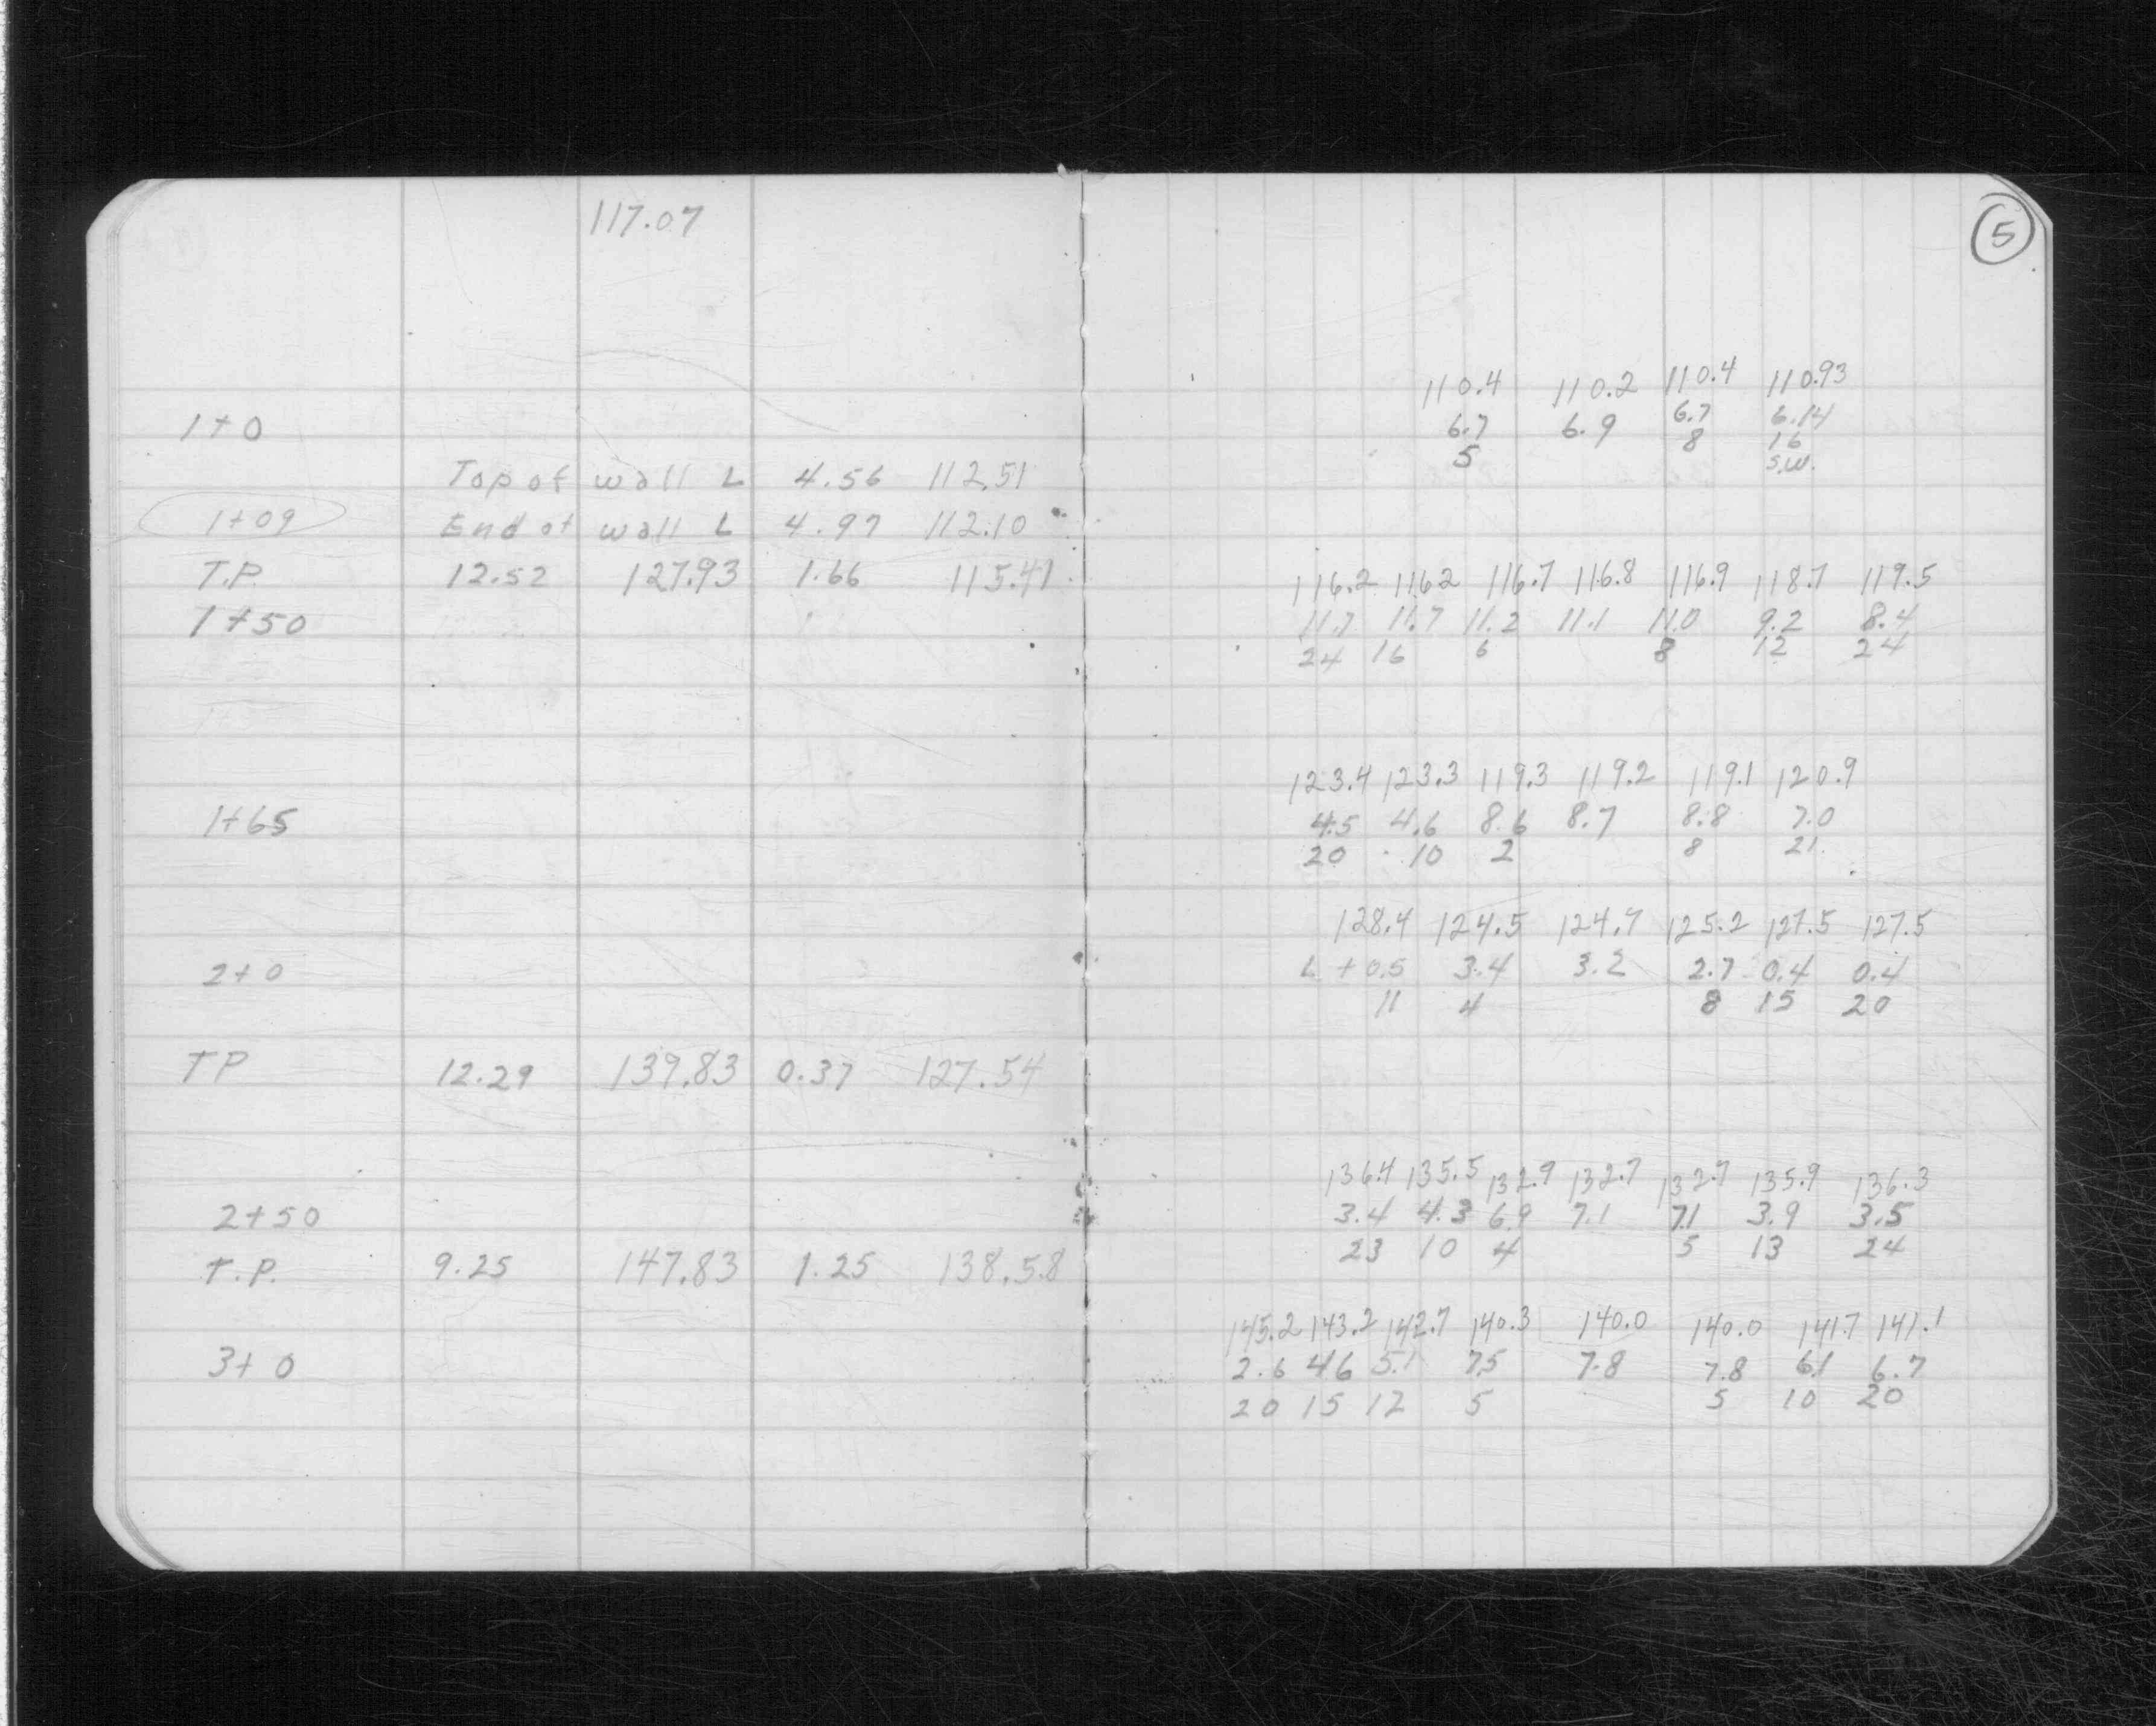 117.07
1+0
Top of wall L 4.56 112.51
1+09 End of wall L 4.97 112.10
T.P. 12.52 127.93 1.66 115.41
1+50
1+65
2+0
TP 12.29 139.83 0.37 127.54
2+50
T.P. 9.25 147.83 1.25 138.58
3+0
5
110.4 110.2 110.4 110.93
6.7 6.9 6.7 6.14
5 8 16
S.W.
116.2 116.2 116.7 116.8 116.9 118.7 119.5
11.7 11.7 11.2 11.1 11.0 9.2 8.4
24 16 6 8 12 24
123.4 123.3 119.3 119.2 119.1 120.9
4.5 4.6 8.6 8.7 8.8 7.0
20 10 2 8 21
128.4 124.5 124.7 125.2 127.5 127.5
L +0.5 3.4 3.2 2.7 0.4 0.4
11 4 8 15 20
136.4 135.5 132.9 132.7 132.7 135.9 136.3
3.4 4.3 6.9 7.1 7.1 3.9 3.5
23 10 4 5 13 24
145.2 143.2 142.7 140.3 140.0 140.0 141.7 141.1
2.6 4.6 5.1 7.5 7.8 7.8 6.1 6.7
20 15 12 5 5 10 20